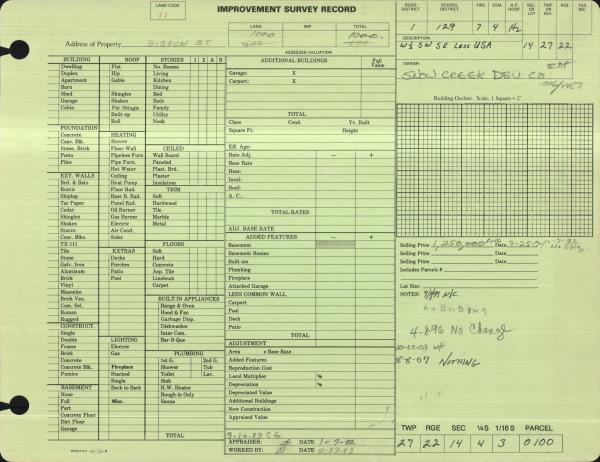 LAND CODE
11
IMPROVEMENT SURVEY RECORD
ROAD DISTRICT SCHOOL DISTRICT FIRE CEM. A.P. HOSP. SEC OR LOT TWP OR BLK. RGE TAX NO.
1 129 7 4 H2
LAND IMP. TOTAL
1000 1000
500 500
DESCRIPTION
W½ SW SE Less USA 14 27 22
Address of Property GIBSON ST.
ASSESSED VALUATION
OWNER:
SNOW CREEK DEV CO
BUILDING ROOF STORIES 1 2 A B
Dwelling Flat No. Rooms
Duplex Hip Living
Apartment Gable Kitchen
Barn Dining
Shed Shingles Bed
Garage Shakes Bath
Cabin Pat Shingle Family
Built-up Utility
Roll Nook
FOUNDATION
Concrete HEATING
Conc. Blk. Stoves CEILED
Stone, Brick Floor-Wall Wall Board
Posts Pipeless Furn. Paneled
Piles Pipe Furn. Plast. Brd.
Hot Water Plaster
EXT. WALLS Ceiling Insulation
Brd. & Bats Heat Pump TRIM
Rustic Floor Rad. Soft
Shiplap Base B. Rad. Hardwood
Tar Paper Panel Rad. Tile
Cedar Oil Burner Marble
Shingles Gas Burner Metal
Shakes Electric
Stucco Air Cond.
Conc. Blks. Solar
TX-111 FLOORS
Tile EXTRAS Soft
Stone Decks Hard
Galv. Iron Porches Concrete
Aluminum Patio Asp. Tile
Brick Pool Linoleum
Vinyl Carpet
Masonite
Brick Ven. BUILT-IN APPLIANCES
Com. Sel. Range & Oven
Roman Hood & Fan
Rugged Garbage Disp.
CONSTRUCT. Dishwasher
Single Inter Com.
Double LIGHTING Bar-B-Que
Frame Electric
Brick Gas PLUMBING
Concrete 1st G. 2nd G.
Concrete Blk. Fireplace Shower Tub
Pumice Stacked Toilet Lav.
Single Sink
BASEMENT Back to Back H.W. Heater
None Rough-in Only
Full Misc. Sauna
Part
Concrete Floor
Dirt Floor
Garage TOTAL
ADDITIONAL BUILDINGS Full Value
Garage: X
Carport: X
TOTAL
Class Cond. Yr. Built
Square Ft. Height
Eff. Age:
Rate Adj. − +
Base Rate
Heat:
Insul:
Roof:
A. C.:
TOTAL RATES
ADJ. BASE RATE
ADDED FEATURES − +
Basement
Basement Rooms
Built-ins
Plumbing
Fireplace
Attached Garage
LESS COMMON WALL
Carport
Pool
Deck
Patio
TOTAL
ADJUSTMENT
Area x Base Rate
Reproduction Cost
Local Multiplier %
Depreciation %
Depreciated Value
Additional Buildings
New Construction
Appraised Value
9-14-83 CG
APPRAISER: DATE 1-9-92
WORKED BY: DATE 11-22-83
Building Outline: Scale, 1 Square = 2'
Selling Price 1,250,000 Date 7-25-91
Selling Price Date
Includes Parcels #
Lot Size
NOTES: N/C
No Building
4-896 No Change
N/C
8-8-07 NOTHING
TWP RGE SEC ¼S 1/16 S PARCEL
27 22 14 4 3 0100